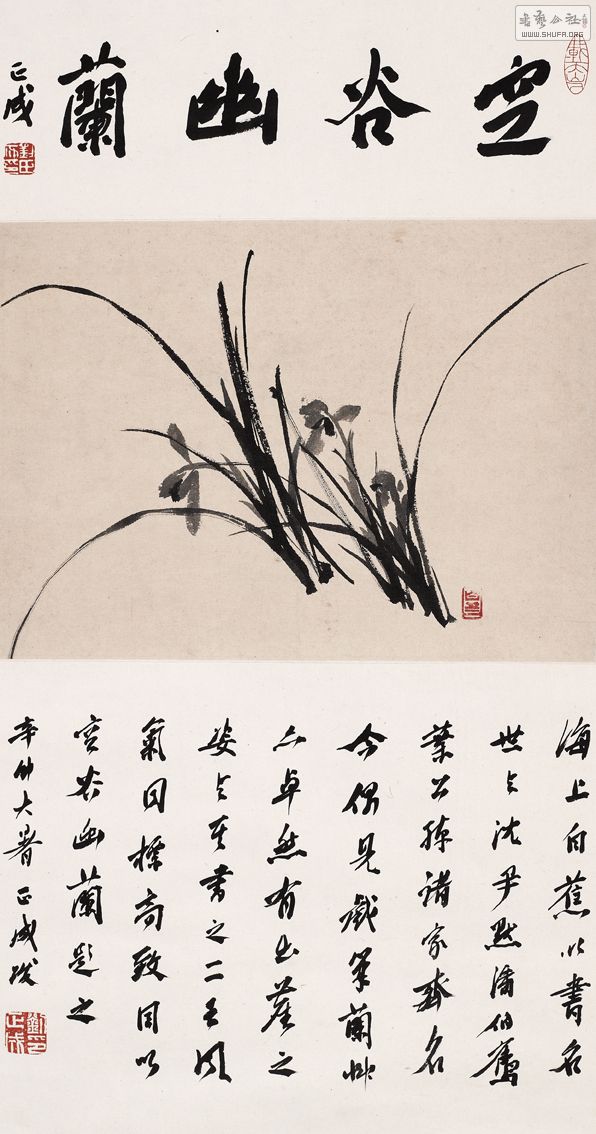 書藝公社
WWW.SHUFA.ORG
空谷幽蘭
正成
海上白蕉以書名
世与沈尹默潘伯鷹
葉公綽諸家齊名
今偶見戲筆蘭草
亦卓然有出塵之
姿与其書之二王風
氣同標高致因以
空谷幽蘭題之
辛卯大暑正成跋